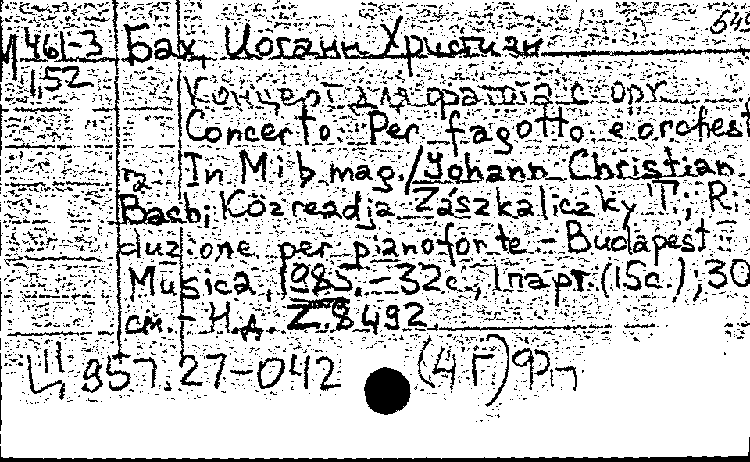 И461-3 Бах, Иоганн Христиан
1,52
Концерт для фагота с орк.
Concerto. Per fagotto e orchest
ra. In Mi b mag. / Johann Christian
Bach; Közreadja Zászkaliczky T.; Ri
duzione per pianoforte - Budapest:
Musica, 1985. - 32с., 1парт.(15с.); 30
см. - Н.д. Z.8492
Ц 957.27-042 (4Г)